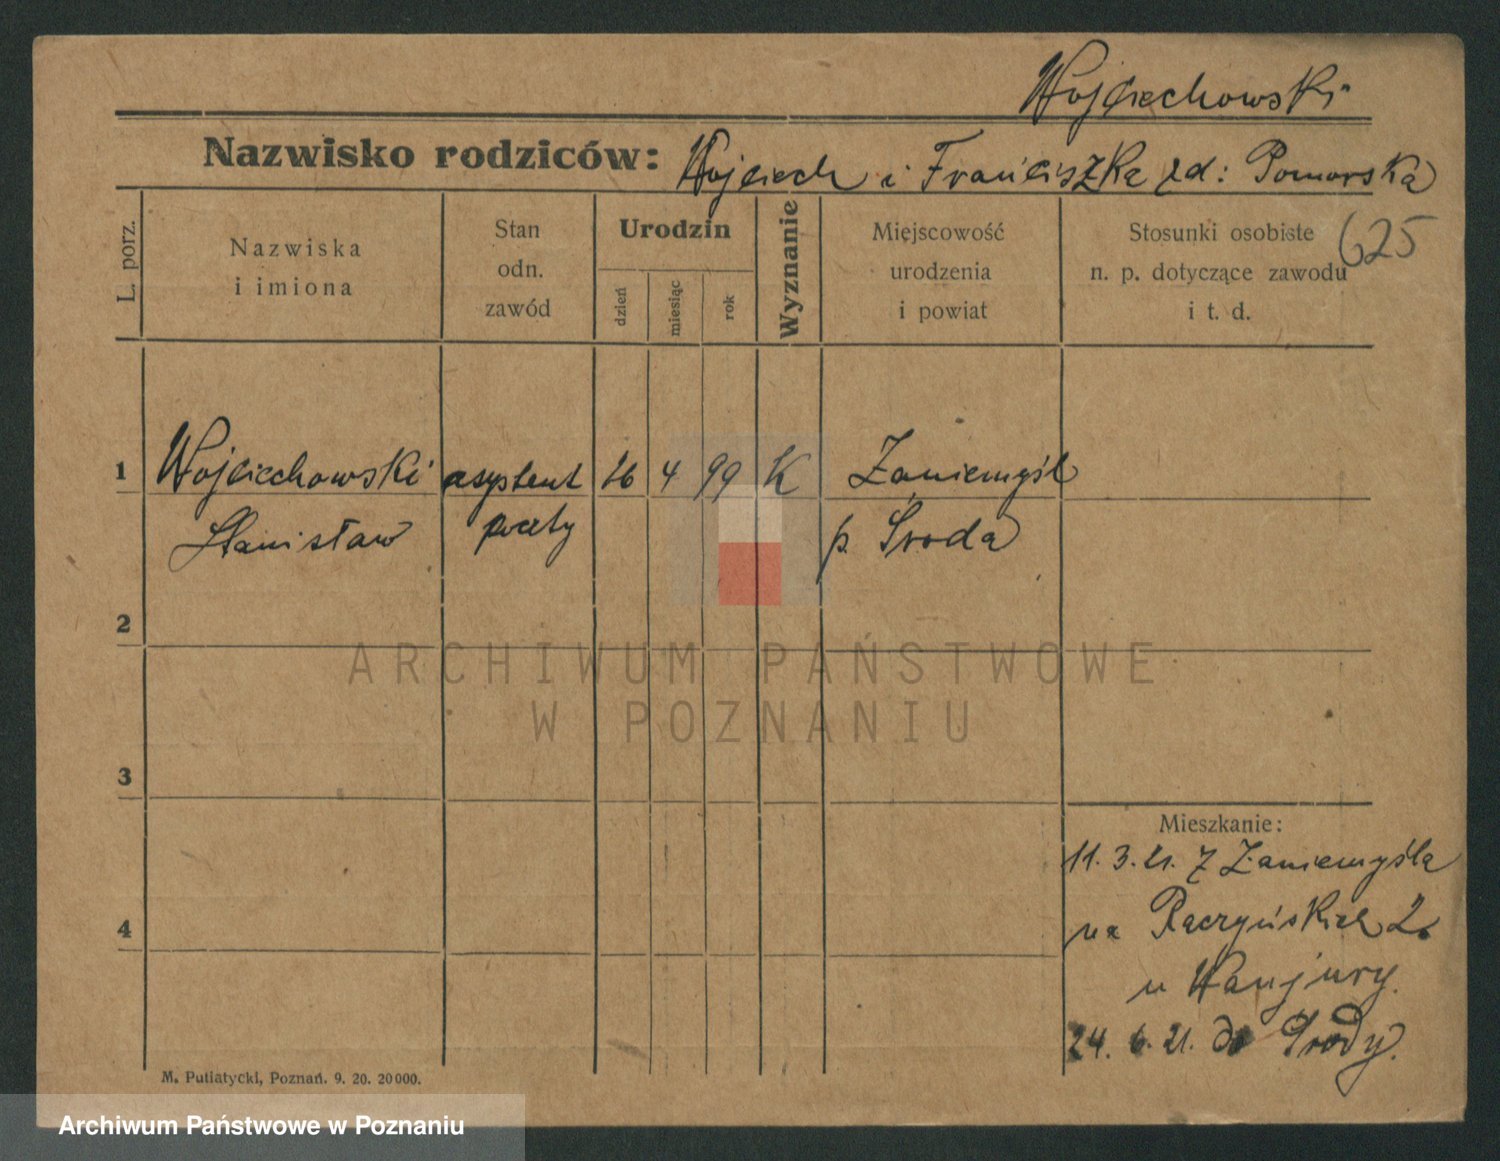 Wojciechowski
Nazwisko rodziców: Wojciech i Franciszka zd: Pomorska
625
L. porz.
Nazwiska
i imiona
Stan
odn.
zawód
Urodzin
dzień
miesiąc
rok
Wyznanie
Miejscowość
urodzenia
i powiat
Stosunki osobiste
n. p. dotyczące zawodu
i t. d.
1 Wojciechowski asystent 26 4 99 K Zaniemyśl
Stanisław poczty p. Środa
2
3
4
ARCHIWUM PAŃSTWOWE
W POZNANIU
Mieszkanie:
11. 3. 21. z Zaniemyśla
na Raczyńskich 2
u
24. 6. 21. do Środy.
M. Putiatycki, Poznań. 9. 20. 20000.
Archiwum Państwowe w Poznaniu